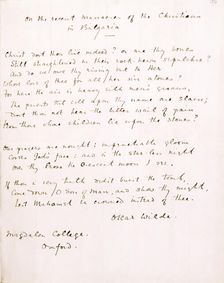 On the recent Massacres of the Christians
in Bulgaria
Christ dost thou live indeed? or are thy bones
Still straightened in their rock-hewn sepulchre?
And do we owe thy rising but to Her
Whose love of thee for all her sins atones?
For here the air is heavy with men's groans,
The priests that call upon thy name are slain;
Dost thou not hear the bitter wail of pain
From those whose children lie upon the stones?
Our prayers are nought: impenetrable gloom
Covers God's face; and in the star-less night
over thy Cross the Crescent moon I see.
If thou in very truth didst burst the tomb,
Come down, O Son of Man, and show thy might,
Lest Mahomet be crowned instead of thee.
Oscar Wilde.
Magdalen College.
Oxford.